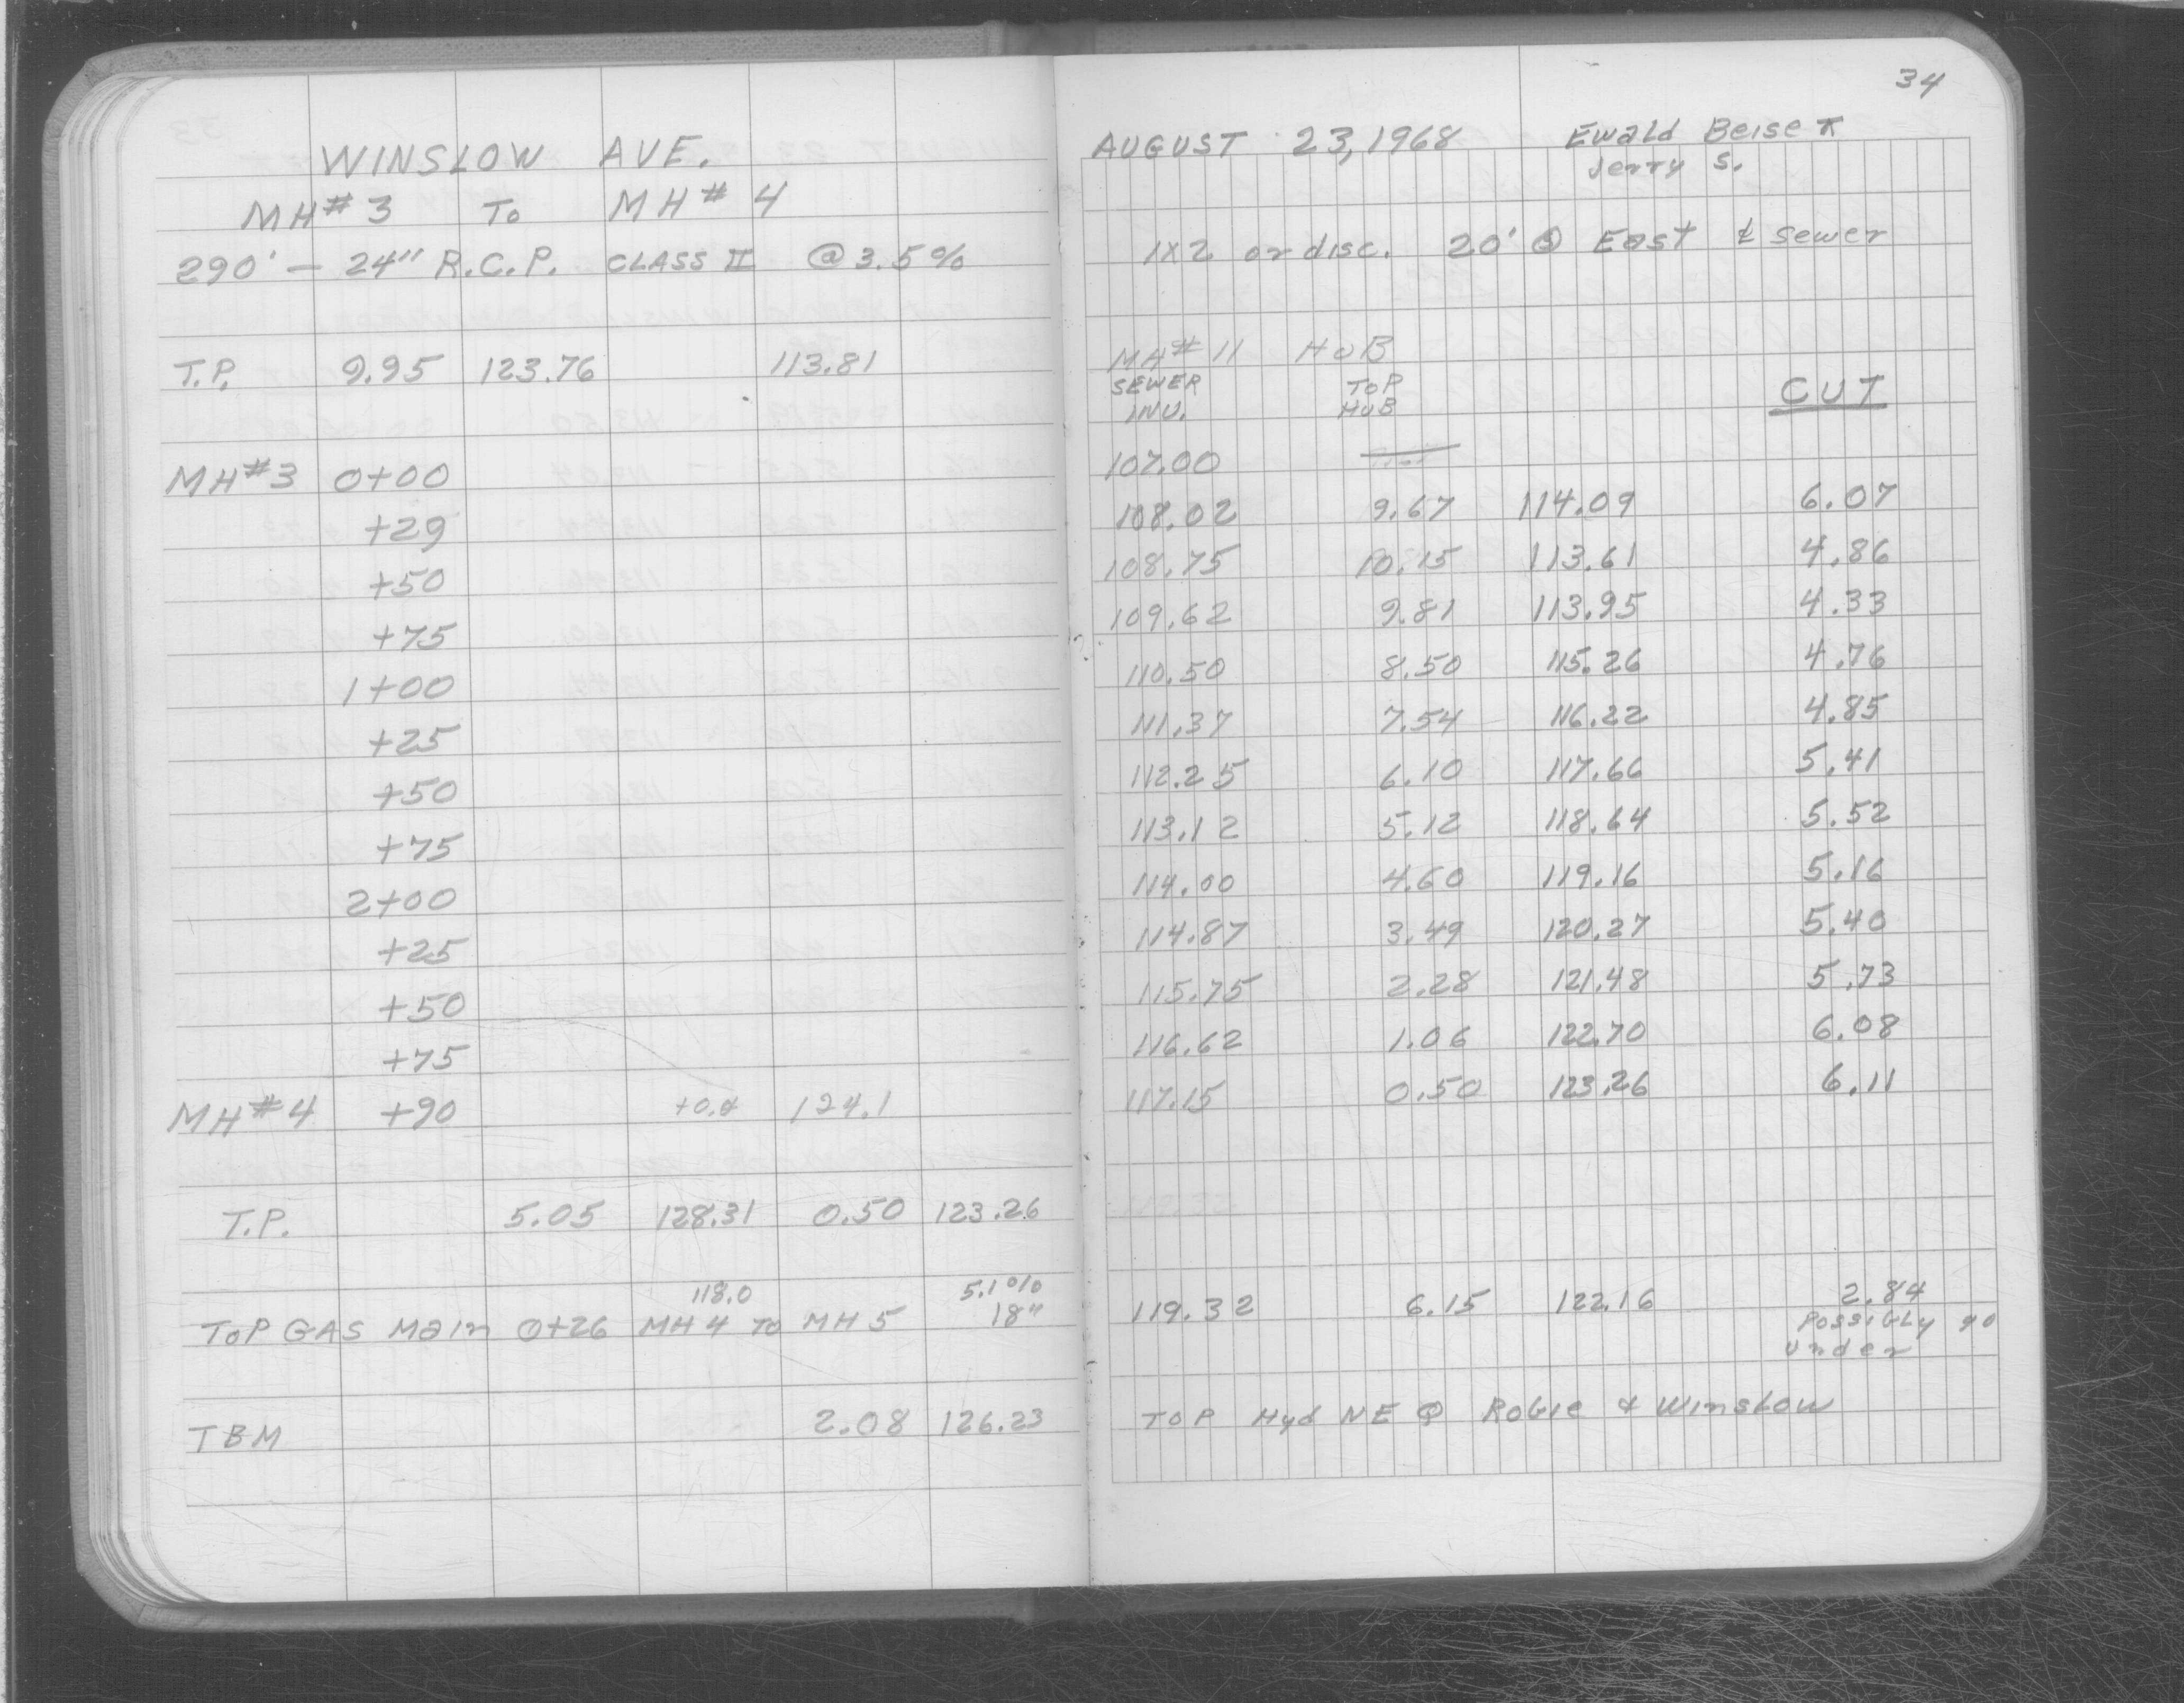 WINSLOW AVE.
MH# 3 To MH# 4
290' - 24" R.C.P. CLASS II @ 3.5%
T.P. 9.95 123.76 113.81
MH#3 0+00
+29
+50
+75
1+00
+25
+50
+75
2+00
+25
+50
+75
MH#4 +90 124.1
T.P. 5.05 128.31 0.50 123.26
118.0 5.1%
TOP GAS Main 0+26 MH 4 To MH 5 18"
TBM 2.08 126.23
34
AUGUST 23, 1968 Ewald Beise π
Jerry S.
1X2 or disc. 20' East ℄ Sewer
MH# 11 HUB
SEWER TOP CUT
INV. HUB
107.00
108.02 9.67 114.09 6.07
108.75 10.15 113.61 4.86
109.62 9.81 113.95 4.33
110.50 8.50 115.26 4.76
111.37 7.54 116.22 4.85
112.25 6.10 117.66 5.41
113.12 5.12 118.64 5.52
114.00 4.60 119.16 5.16
114.87 3.49 120.27 5.40
115.75 2.28 121.48 5.73
116.62 1.06 122.70 6.08
117.15 0.50 123.26 6.11
119.32 6.15 122.16 2.84
POSSIBLY go
under
TOP Hyd NE @ Robie & Winslow